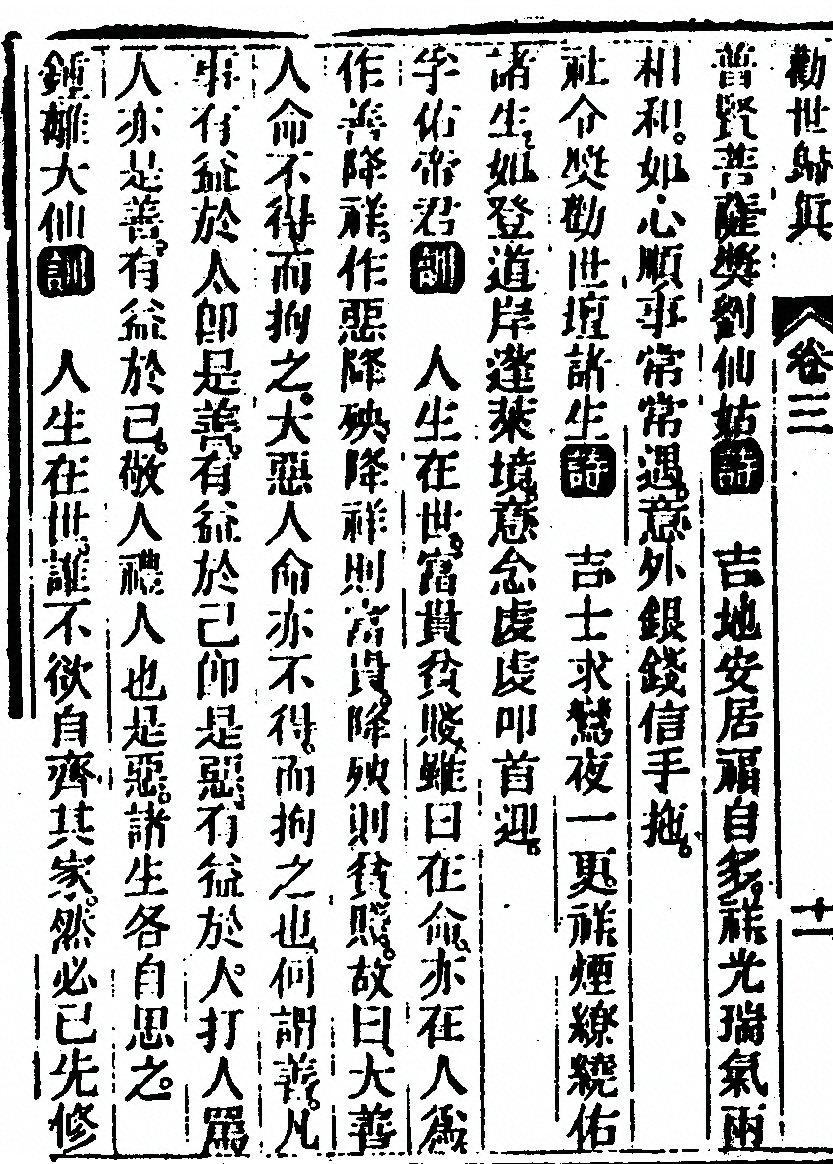 勸世歸真 卷三 十一
普賢菩薩獎劉仙姑詩 吉地安居福自多。祥光瑞氣兩
相和。如心順事常常遇。意外銀錢信手拖。
社令獎勸世壇諸生詩 吉士求鸞夜一更。祥煙繚繞佑
諸生。如登道岸蓬萊境。意念虔虔叩首迎。
孚佑帝君訓 人生在世。富貴貧賤。雖曰在命。亦在人為。
作善降祥。作惡降殃。降祥則富貴。降殃則貧賤。故曰、大善
人命不得而拘之。大惡人命亦不得。而拘之也、何謂善。凡
事有益於人即是善。有益於己即是惡。有益於人。打人罵
人亦是善。有益於己。敬人禮人也是惡。諸生各自思之。
鍾離大仙訓 人生在世。誰不欲自齊其家。然必己先修